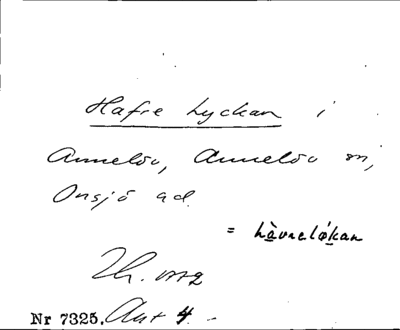 Hafre Lyckan i
Annelöv, Annelöv sn,
Onsjö hd.
= hàvreløkan
Th. 1772
Nr 7325. Akt 4.